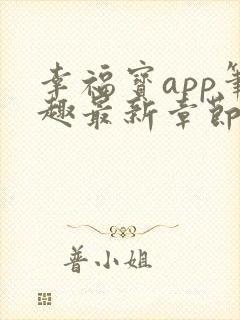 幸福宝app笔
趣最新章节
普小姐